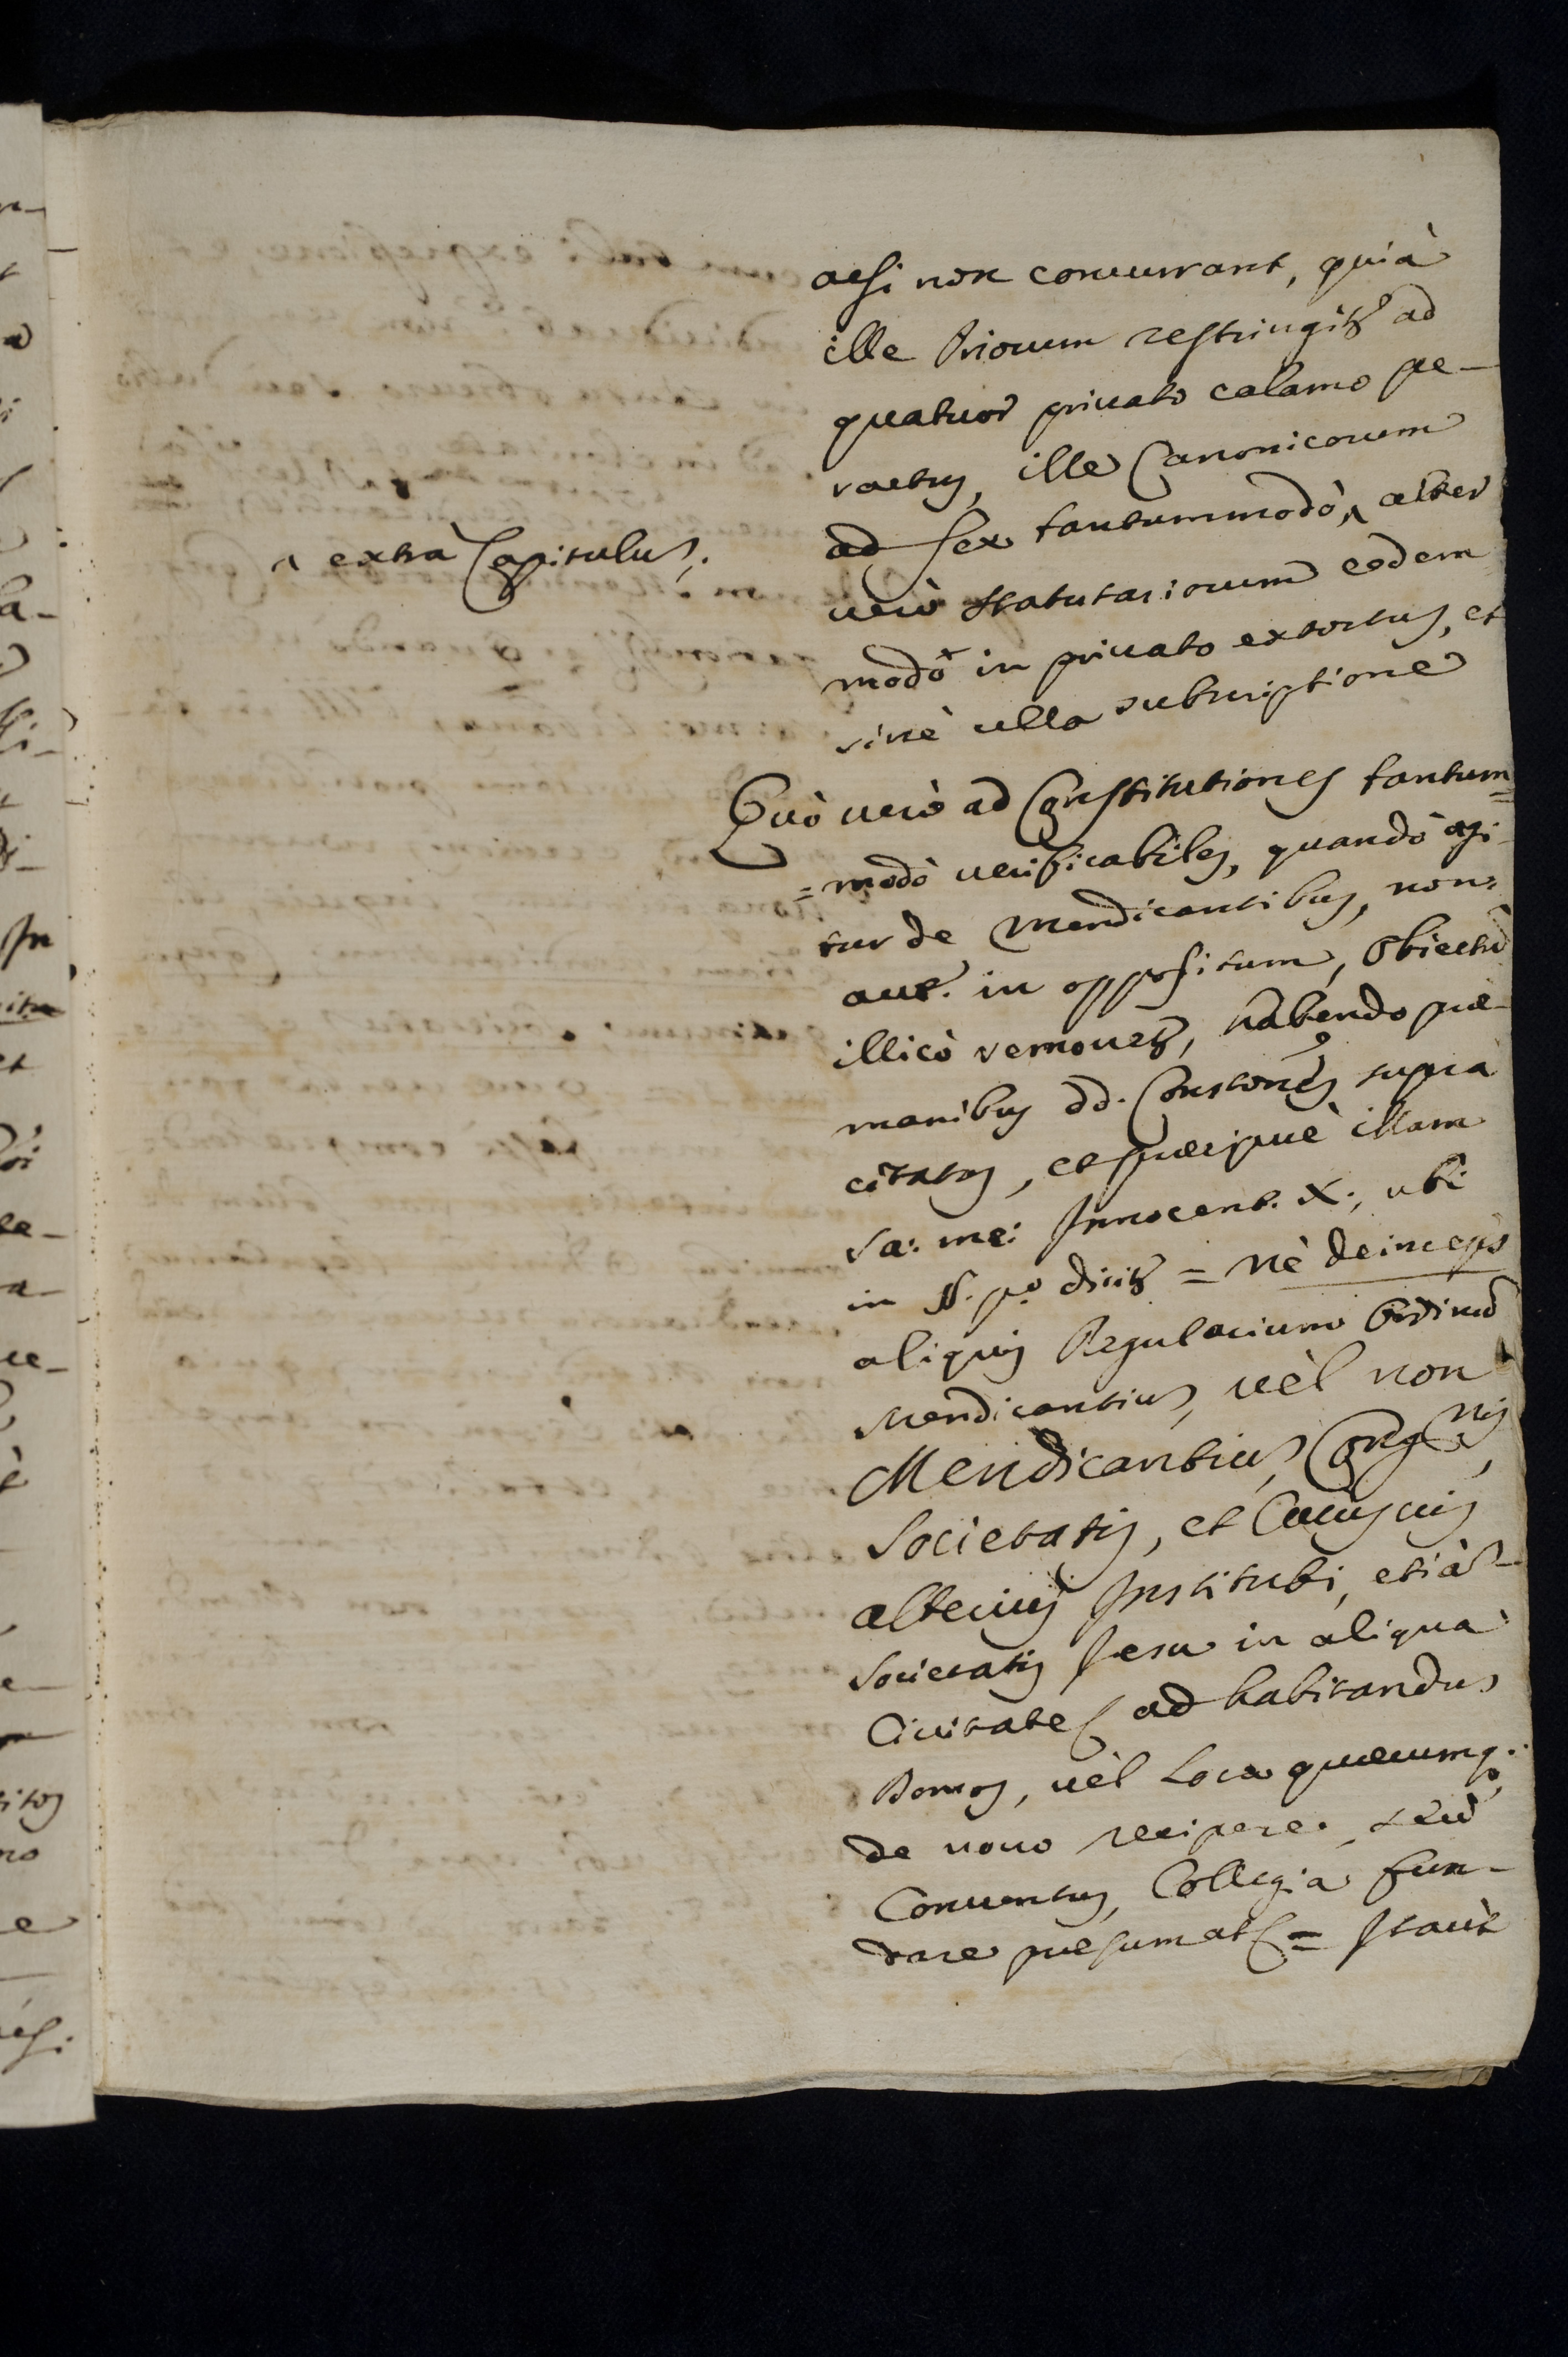 acsi non concurrant, quià
ille Priorum restringitr ad
quatuor priuato calamo pe-
ractus, ille Canonicorum
ad sex tantummodò, ^ alter
^ extrà Capitulum.
uerò statutariorum eodem
modo in priuato extortus, et
sinè ulla subscriptione
Quò uerò ad Constitutiones tantum=
=modò uerificabiles, quandò agi-
tur de Mendicantibus, non
aut. in oppositum, Obiectum
illicò remouetr, habendo prae
manibus dd. Constones suprà
citatas, et praecipuè illam
sa: me: Innocent. X., ubi
in §. po. dicitr = nè deinceps
aliquis Regularium Ordinum
Mendicantium, uèl non
Mendicantium, Congnis,
Societatis, et Cuiusuis
alterius Instituti, etiàm
Societatis Jesu in aliqua
Ciuitate ad habitandum
Domos, uèl Loca quaecumq.
de nouo recipere, seù
Conuentus, Collegia fun-
dare praesumat = Itaùt